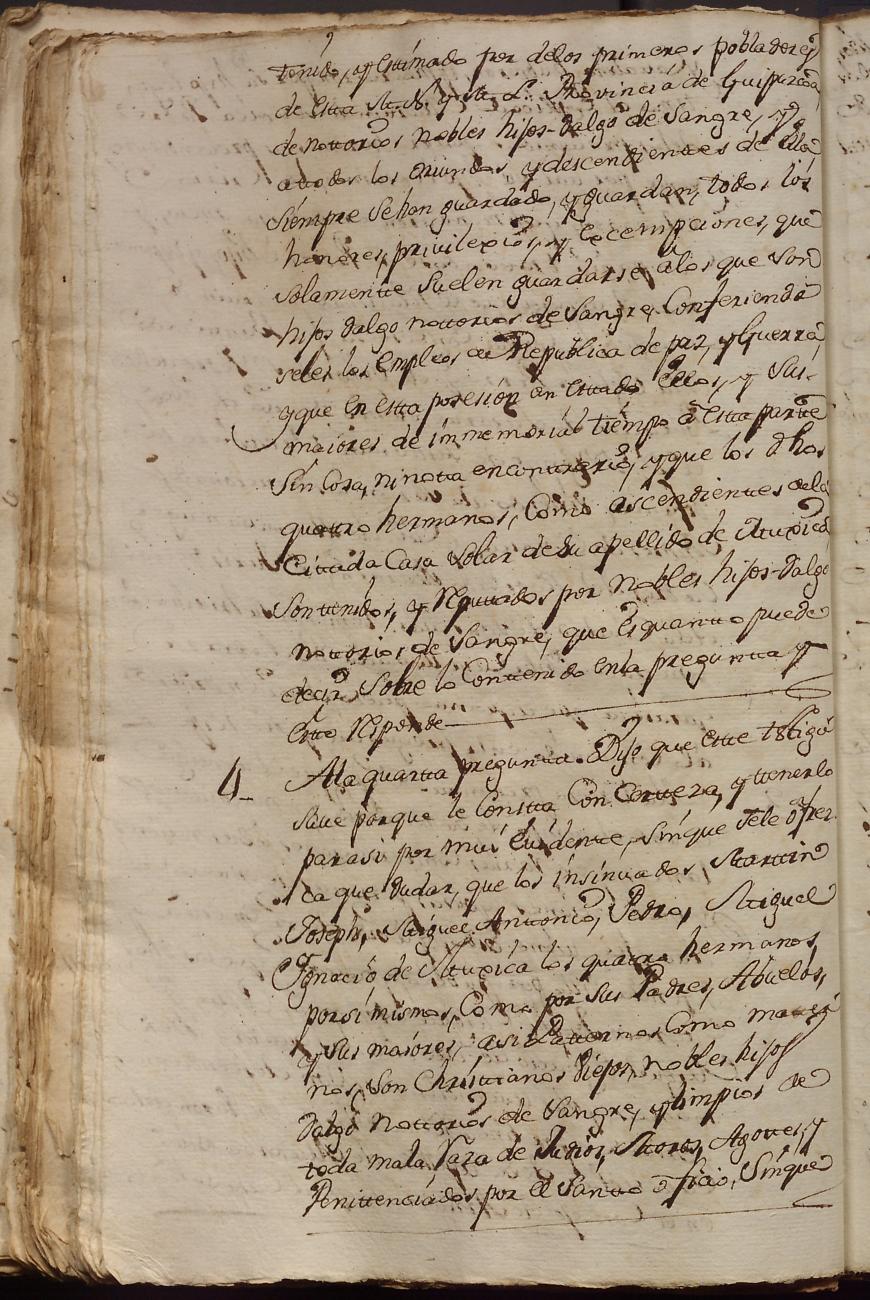 tenido, y estimado por de los primeros pobladores
de esta M. N. y M. L. Provincia de Guipuzcoa,
de nottorios nobles hijos-dalgo de Sangre, y
a todos los oriundos, y descendienttes de ella
siempre se han guardado, y guardan, todos los
honores, privilexios, y excempciones, que
solamentte suelen guardarse a los que son
hijos dalgo nottorios de Sangre, Confiriendo
seles los Empleos de Republica de paz, y Guerra
y que en estta posesion an esttado ellos, y sus
maiores de immemorial tiempo a estta partte
sin cosa, ni notta en conttrario, y que los dhos
quattro hermanos, Como ascendienttes de la
Cittada Casa Solar de su apellido de
son tenidos, y Reputtados por Nobles hijos-dalgo
nottorios de Sangre, que es quantto puede
decir sobre lo Conttenido en la pregunta y
estto Responde
4 A la quartta pregunta. Dijo que estte tstigo
save porque le Constta Con Certteza, y tenerlo
para si por mui Evidente, sin que se le ofrez
ca que dudar, que los insinuados, Marttin
Joseph, Miguel Antonio, Pedro, Miguel
Ignacio de los quattro hermanos,
por si mismos, Como por sus Padres, Abuelos,
y sus maiores, asi Patternos, Como matter
nos, son Christtianos Viejos, nobles hijos
dalgo nottorios de Sangre, y limpios de
toda mala raza de Judios, Moros, Agottes, y
Penittenciados por el Santto oficio, sin que